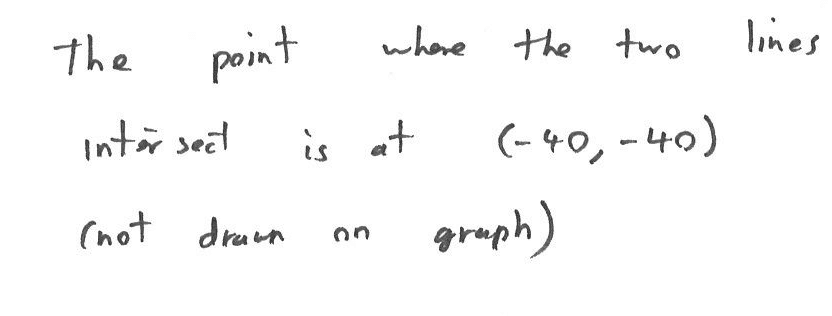 The point where the two lines
intersect is at (-40, -40)
(not drawn on graph)